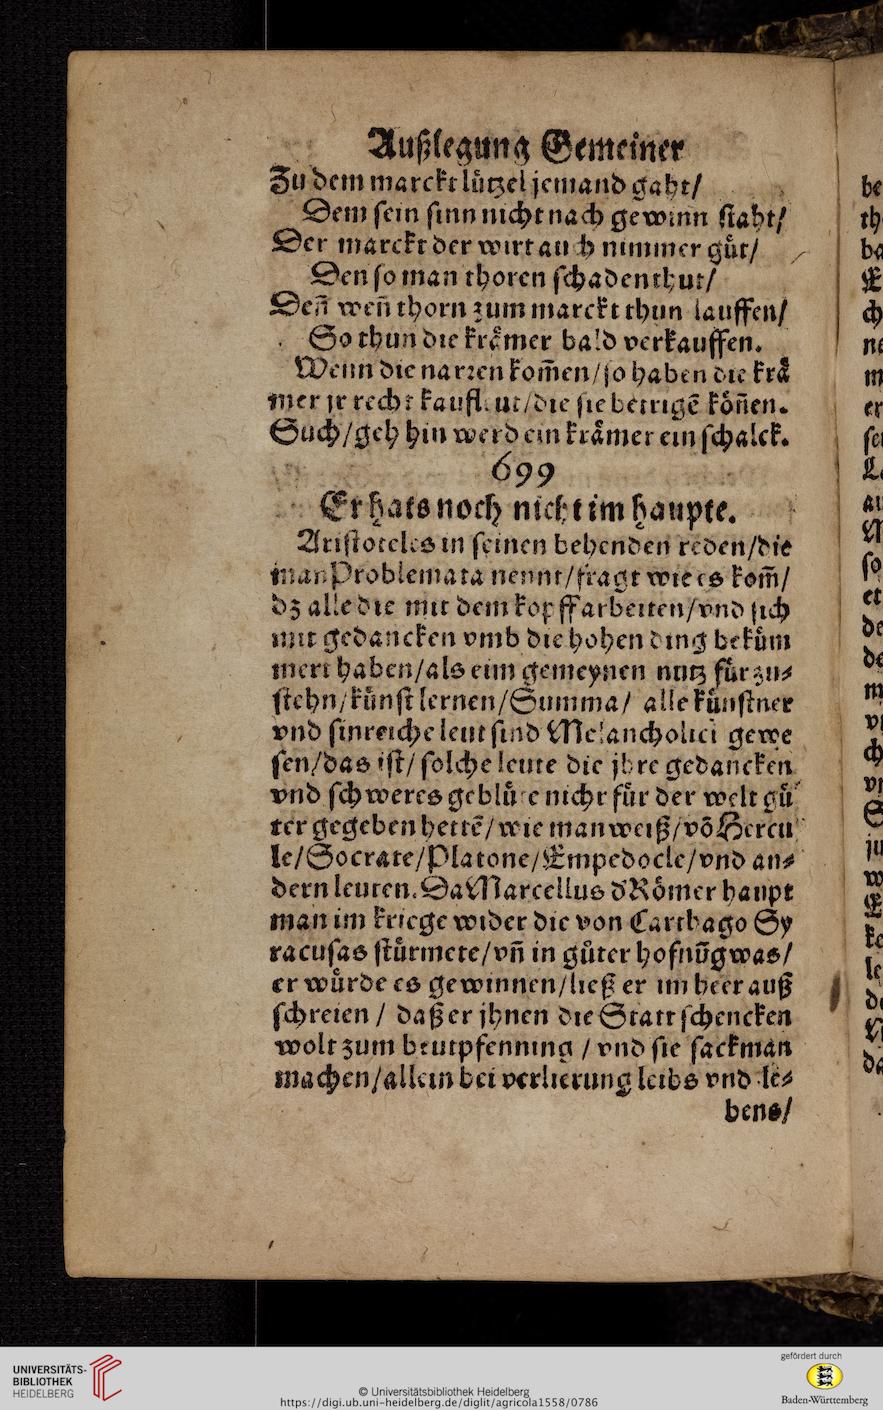 Außlegung Gemeiner
Zu dem marckt lützel jemand gaht/
Dem sein sinn nicht nach gewinn staht/
Der marckt der wirt auch nimmer gůt/
Den so man thoren schaden thut/
Deñ weñ thorn zum marckt thun lauffen/
So thun die krämer bald verkauffen.
Wenn die narren kom̃en/so haben die krä
mer jr recht kaufleut/die sie betrigē köñen.
Such/geh hin werd ein krämer ein schalck.
699
Er hats noch nicht im haupte.
Aristoteles in seinen behenden reden/die
man Problemata nennt/fragt wie es kom̃/
dz alle die mit dem kopff arbeiten/vnd sich
mit gedancken vmb die hohen ding beküm
mert haben/als eim gemeynen nutz für zu⸗
stehn/künst lernen/Summa/ alle künstner
vnd sinreiche leut sind Melancholici gewe
sen/das ist/ solche leute die jhre gedancken
vnd schweres geblüte nicht für der welt gü
ter gegeben hettē/wie man weiß/võ Hercu
le/Socrate/Platone/Empedocle/vnd an⸗
dern leuten. Da Marcellus d'Römer haupt
man im kriege wider die von Carthago Sy
racusas stürmete/vñ in gůter hofnũg was/
er würde es gewinnen/ließ er im heer auß
schreien / daß er jhnen die Statt schencken
wolt zum beutpfenning / vnd sie sackman
machen/allein bei verlierung leibs vnd le⸗
bens/
UNIVERSITÄTS-
BIBLIOTHEK
HEIDELBERG
© Universitätsbibliothek Heidelberg
https://digi.ub.uni-heidelberg.de/diglit/agricola1558/0786
gefördert durch
Baden-Württemberg